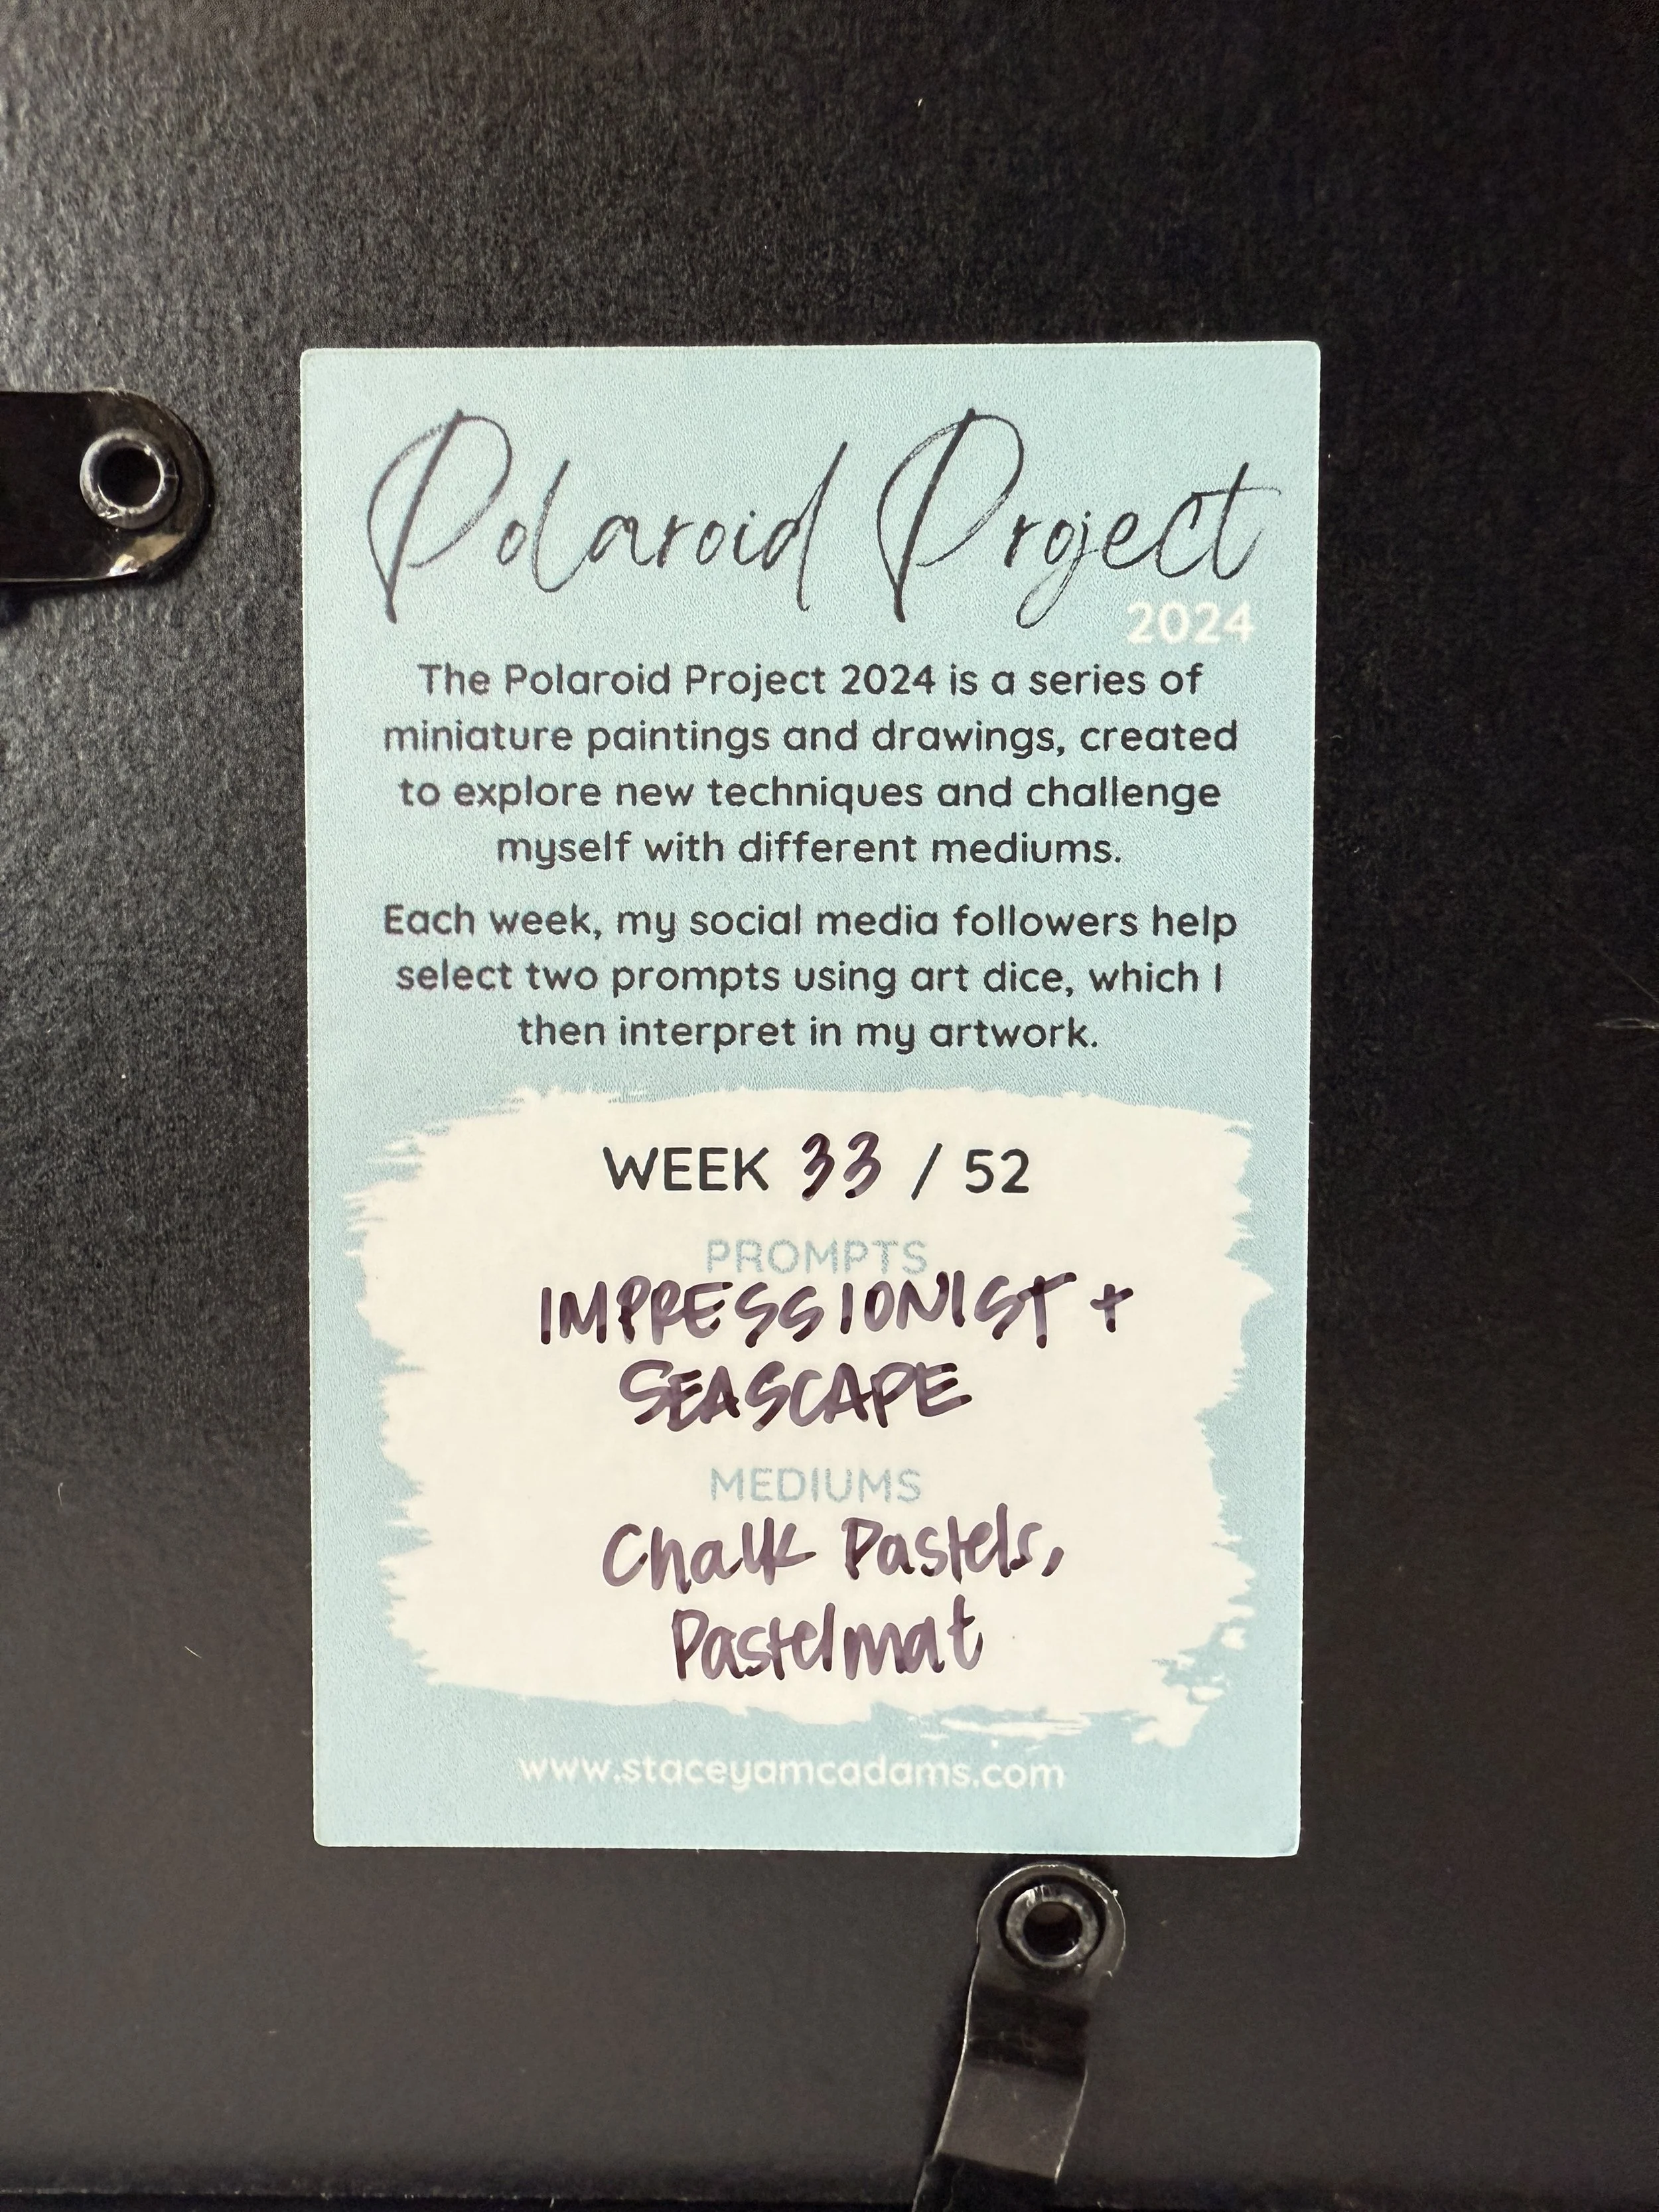 Polaroid Project
2024
The Polaroid Project 2024 is a series of
miniature paintings and drawings, created
to explore new techniques and challenge
myself with different mediums.
Each week, my social media followers help
select two prompts using art dice, which I
then interpret in my artwork.
WEEK 33 / 52
PROMPTS
IMPRESSIONIST +
SEASCAPE
MEDIUMS
Chalk Pastels,
Pastelmat
www.staceyamcadams.com